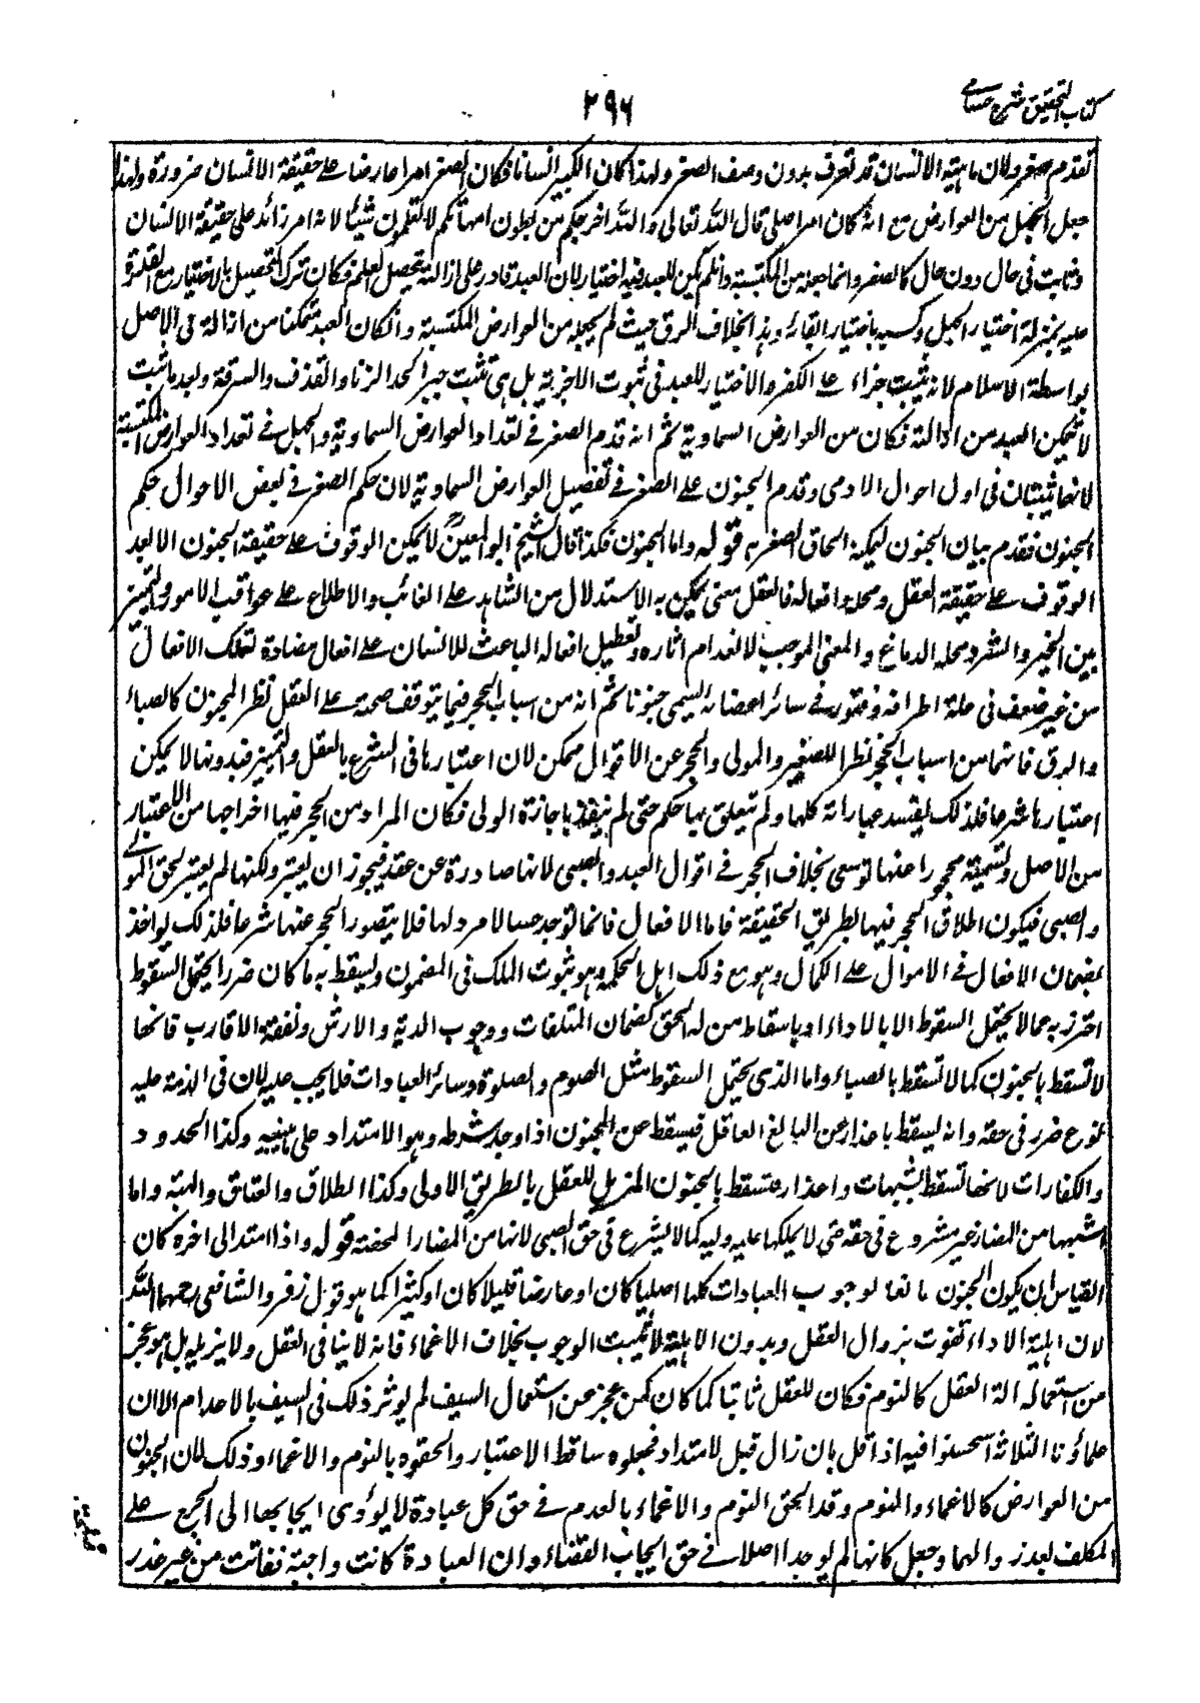 كتاب التحقيق شرح حسامي
٢٩٦
تقدم صغر ولان ماهية الانسان قد تعرف بدون وصف الصغر ولهذا كان الكبير انسانا فكان الصغر امرا عارضا على حقيقة الانسان ضرورة ولهذا
جعل الجهل من العوارض مع انه كان امر اصلى قال الله تعالى والله اخرجكم من بطون امهاتكم لا تعلمون شيئا لانه امر زائد على حقيقة الانسان
وثابت فى حال دون حال كالصغر وانما جعله من المكتسبة وان لم يكن للعبد فيه اختيار لان العبد قادر على ازالته بتحصيل العلم فكان ترك التحصيل بالاختيار مع القدرة
عليه بمنزلة اختيار الجهل وكسبه باختيار ابقائه وهذا بخلاف الرق حيث لم يجعله من العوارض المكتسبة وان كان العبد متمكنا من ازالة فى الاصل
بواسطة الاسلام لانه يثبت جزاء على الكفر والاختيار للعبد فى ثبوت الاجزية بل هى تثبت جبرا كحد الزنا والقذف والسرقة وبعد ما ثبت
لا يتمكن العبد من ازالته فكان من العوارض السماوية ثم انه قدم الصغر فى تعداد العوارض السماوية والجهل فى تعداد العوارض المكتسبة
لانهما يثبتان فى اول احوال الادمى وقدم الجنون على الصغر فى تفصيل العوارض السماوية لان حكم الصغر فى بعض الاحوال حكم
الجنون فقدم بيان الجنون ليمكنه الحاق الصغر به قوله واما الجنون فكذا قال الشيخ ابو المعين لا يمكن الوقوف على حقيقة الجنون الا بعد
الوقوف على حقيقة العقل ومحله وافعاله فالعقل معنى يمكن به الاستدلال من الشاهد على الغائب والاطلاع على عواقب الامور والتمييز
بين الخير والشر ومحله الدماغ والمعنى الموجب لانعدام اثاره وتعطيل افعاله الباعث للانسان على افعال مضادة لتلك الافعال
من غير ضعف فى عامة اطرافه وفتور فى سائر اعضائه يسمى جنونا ثم انه من اسباب الحجر فيما يتوقف صحته على العقل نظرا للمجنون كالصباء
والرق فانهما من اسباب الحجر نظرا للصغير والمولى والحجر عن الاقوال ممكن لان اعتبارها فى الشرع بالعقل والتمييز فبدونهما لا يمكن
اعتبارها شرعا فلذلك يفسد عباراته كلها ولم يتعلق بها حكم حتى لم ينفذ باجازة الولى فكان المراد من الحجر فيها اخراجها من الاعتبار
من الاصل وتسميته محجورا عنها توسعى بخلاف الحجر فى اقوال العبد والصبى لانها صادرة عن عقد فيجوز ان يعتبر ولكنها لم يعتبر لحق المولى
والصبى فيكون اطلاق الحجر فيها بطريق الحقيقة فاما الافعال فانما توجد حسا لا مرد لها فلا يتصور الحجر عنها شرعا فلذلك يواخذ
بضمان الافعال فى الاموال على الكمال وهو مع ذلك اهل الحكمه وهو ثبوت الملك فى المضمون ويسقط به ما كان ضررا يحتمل السقوط
احترز به عما لا يحتمل السقوط الا بالاداء او باسقاط من له الحق كضمان المتلفات ووجوب الدية والارش ونفقة الاقارب فانها
لا تسقط بالجنون كما لا تسقط بالصباء واما الذى يحتمل السقوط مثل الصوم والصلوة وسائر العبادات فلا يجب عليه لان فى الذمة عليه
نوع ضرر فى حقه وانه يسقط باعذار عن البالغ العاقل فيسقط عن المجنون اذا وجد شرطه وهو الامتداد على ما نبينه وكذا الحدود
والكفارات لانها تسقط بالشبهات واعذار فتسقط بالجنون المزيل للعقل بالطريق الاولى وكذا الطلاق والعتاق والهبة واما
اشبهها من المضار غير مشروع فى حقه حتى لا يملكها عليه وليه كما لا يشرع فى حق الصبى لانها من المضار المحضة قوله واذا امتد الى اخره كان
القياس ان يكون الجنون مانعا لوجوب العبادات كلها اصليا كان او عارضا قليلا كان او كثيرا كما هو قول زفر والشافعى رحمهما الله
لان اهلية الاداء تفوت بزوال العقل وبدون الاهلية لا يثبت الوجوب بخلاف الاغماء فانه لا ينافى العقل ولا يزيله بل هو عجز
عن استعماله الة العقل كالنوم فكان للعقل ثابتا كما كان كمن عجز عن استعمال السيف لم يوثر ذلك فى السيف بالاعدام الا ان
علماؤنا الثلاثة استحسنوا فيه اذا قل بان زال قبل لامتداد فجعلوه ساقط الاعتبار والحقوه بالنوم والاغماء وذلك لان الجنون
من العوارض كالاغماء والنوم وقد الحق النوم والاغماء بالعدم فى حق كل عبادة لا يؤدى ايجابها الى الحرج على
المكلف بعد زوالهما وجعل كانهما لم يوجدا اصلا فى حق ايجاب القضاء وان العبادة كانت واجبة ففاتت من غير عذر